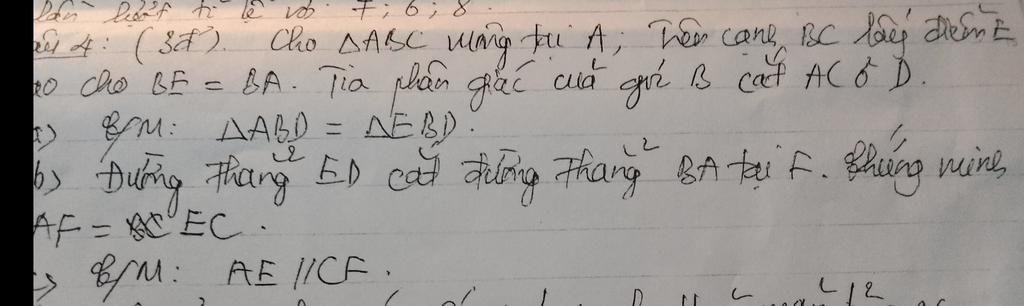 lần lượt tỉ lệ với 7; 6; 8
4: (3đ). Cho △ABC vuông tại A; Trên cạnh BC lấy điểm E
cho BE = BA. Tia phân giác của góc B cắt AC ở D.
C/M: △ABD = △EBD.
b) Đường thẳng ED cắt đường thẳng BA tại F. Chứng minh
AF = EC.
C/M: AE // CF.